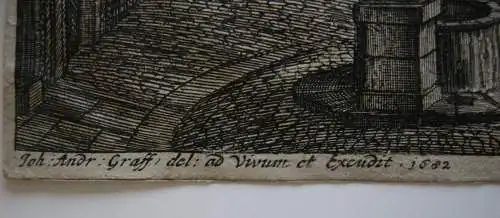 Joh: Andr: Graff, del: ad Vivum et Excudit. 1682